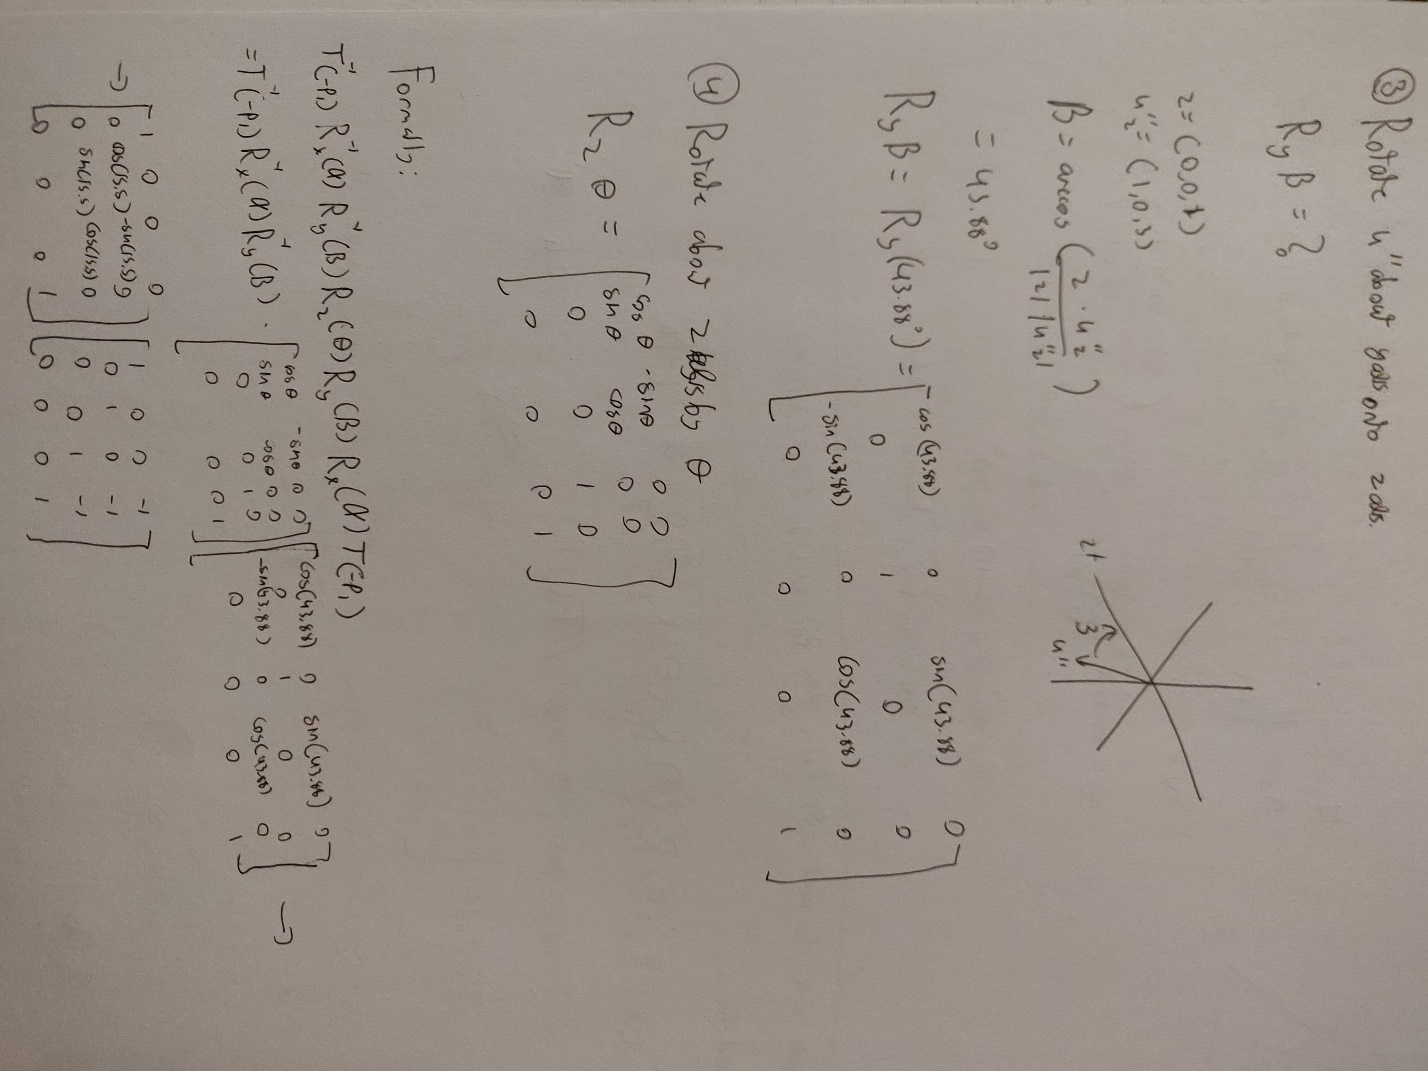 ③ Rotate u" about y axis onto z axis.
Ry B = ?
z = (0,0,1)
u"z = (1,0,3)
B = arccos ( z · u"z / |z| |u"z| )
= 43.88°
z+
3
u"
Ry B = Ry(43.88°) = [ cos(43.88) 0 sin(43.88) 0
0 1 0 0
-sin(43.88) 0 cos(43.88) 0
0 0 0 1 ]
④ Rotate about z axis by θ
Rz θ = [ cos θ -sinθ 0 0
sin θ cosθ 0 0
0 0 1 0
0 0 0 1 ]
Formally:
T⁻¹(-P1) Rx⁻¹(α) Ry⁻¹(B) Rz(θ) Ry(B) Rx(α) T(-P1)
= T⁻¹(-P1) Rx⁻¹(α) Ry⁻¹(B) · [ cosθ -sinθ 0 0 ] [ cos(43.88) 0 sin(43.88) 0 ]
sinθ cosθ 0 0 0 1 0 0
0 0 1 0 -sin(43.88) 0 cos(43.88) 0
0 0 0 1 0 0 0 1 →
→ [ 1 0 0 0 ] [ 1 0 0 -1 ]
0 cos(15.5) -sin(15.5) 0 0 1 0 -1
0 sin(15.5) cos(15.5) 0 0 0 1 -1
0 0 0 1 0 0 0 1